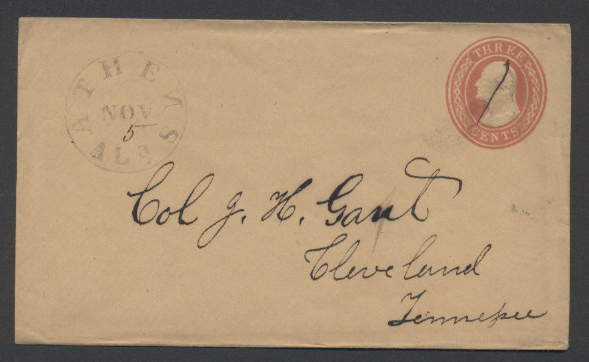 ATHENS
NOV
5
ALA
THREE
CENTS
Col J. H. Gaut
Cleveland
Tennessee